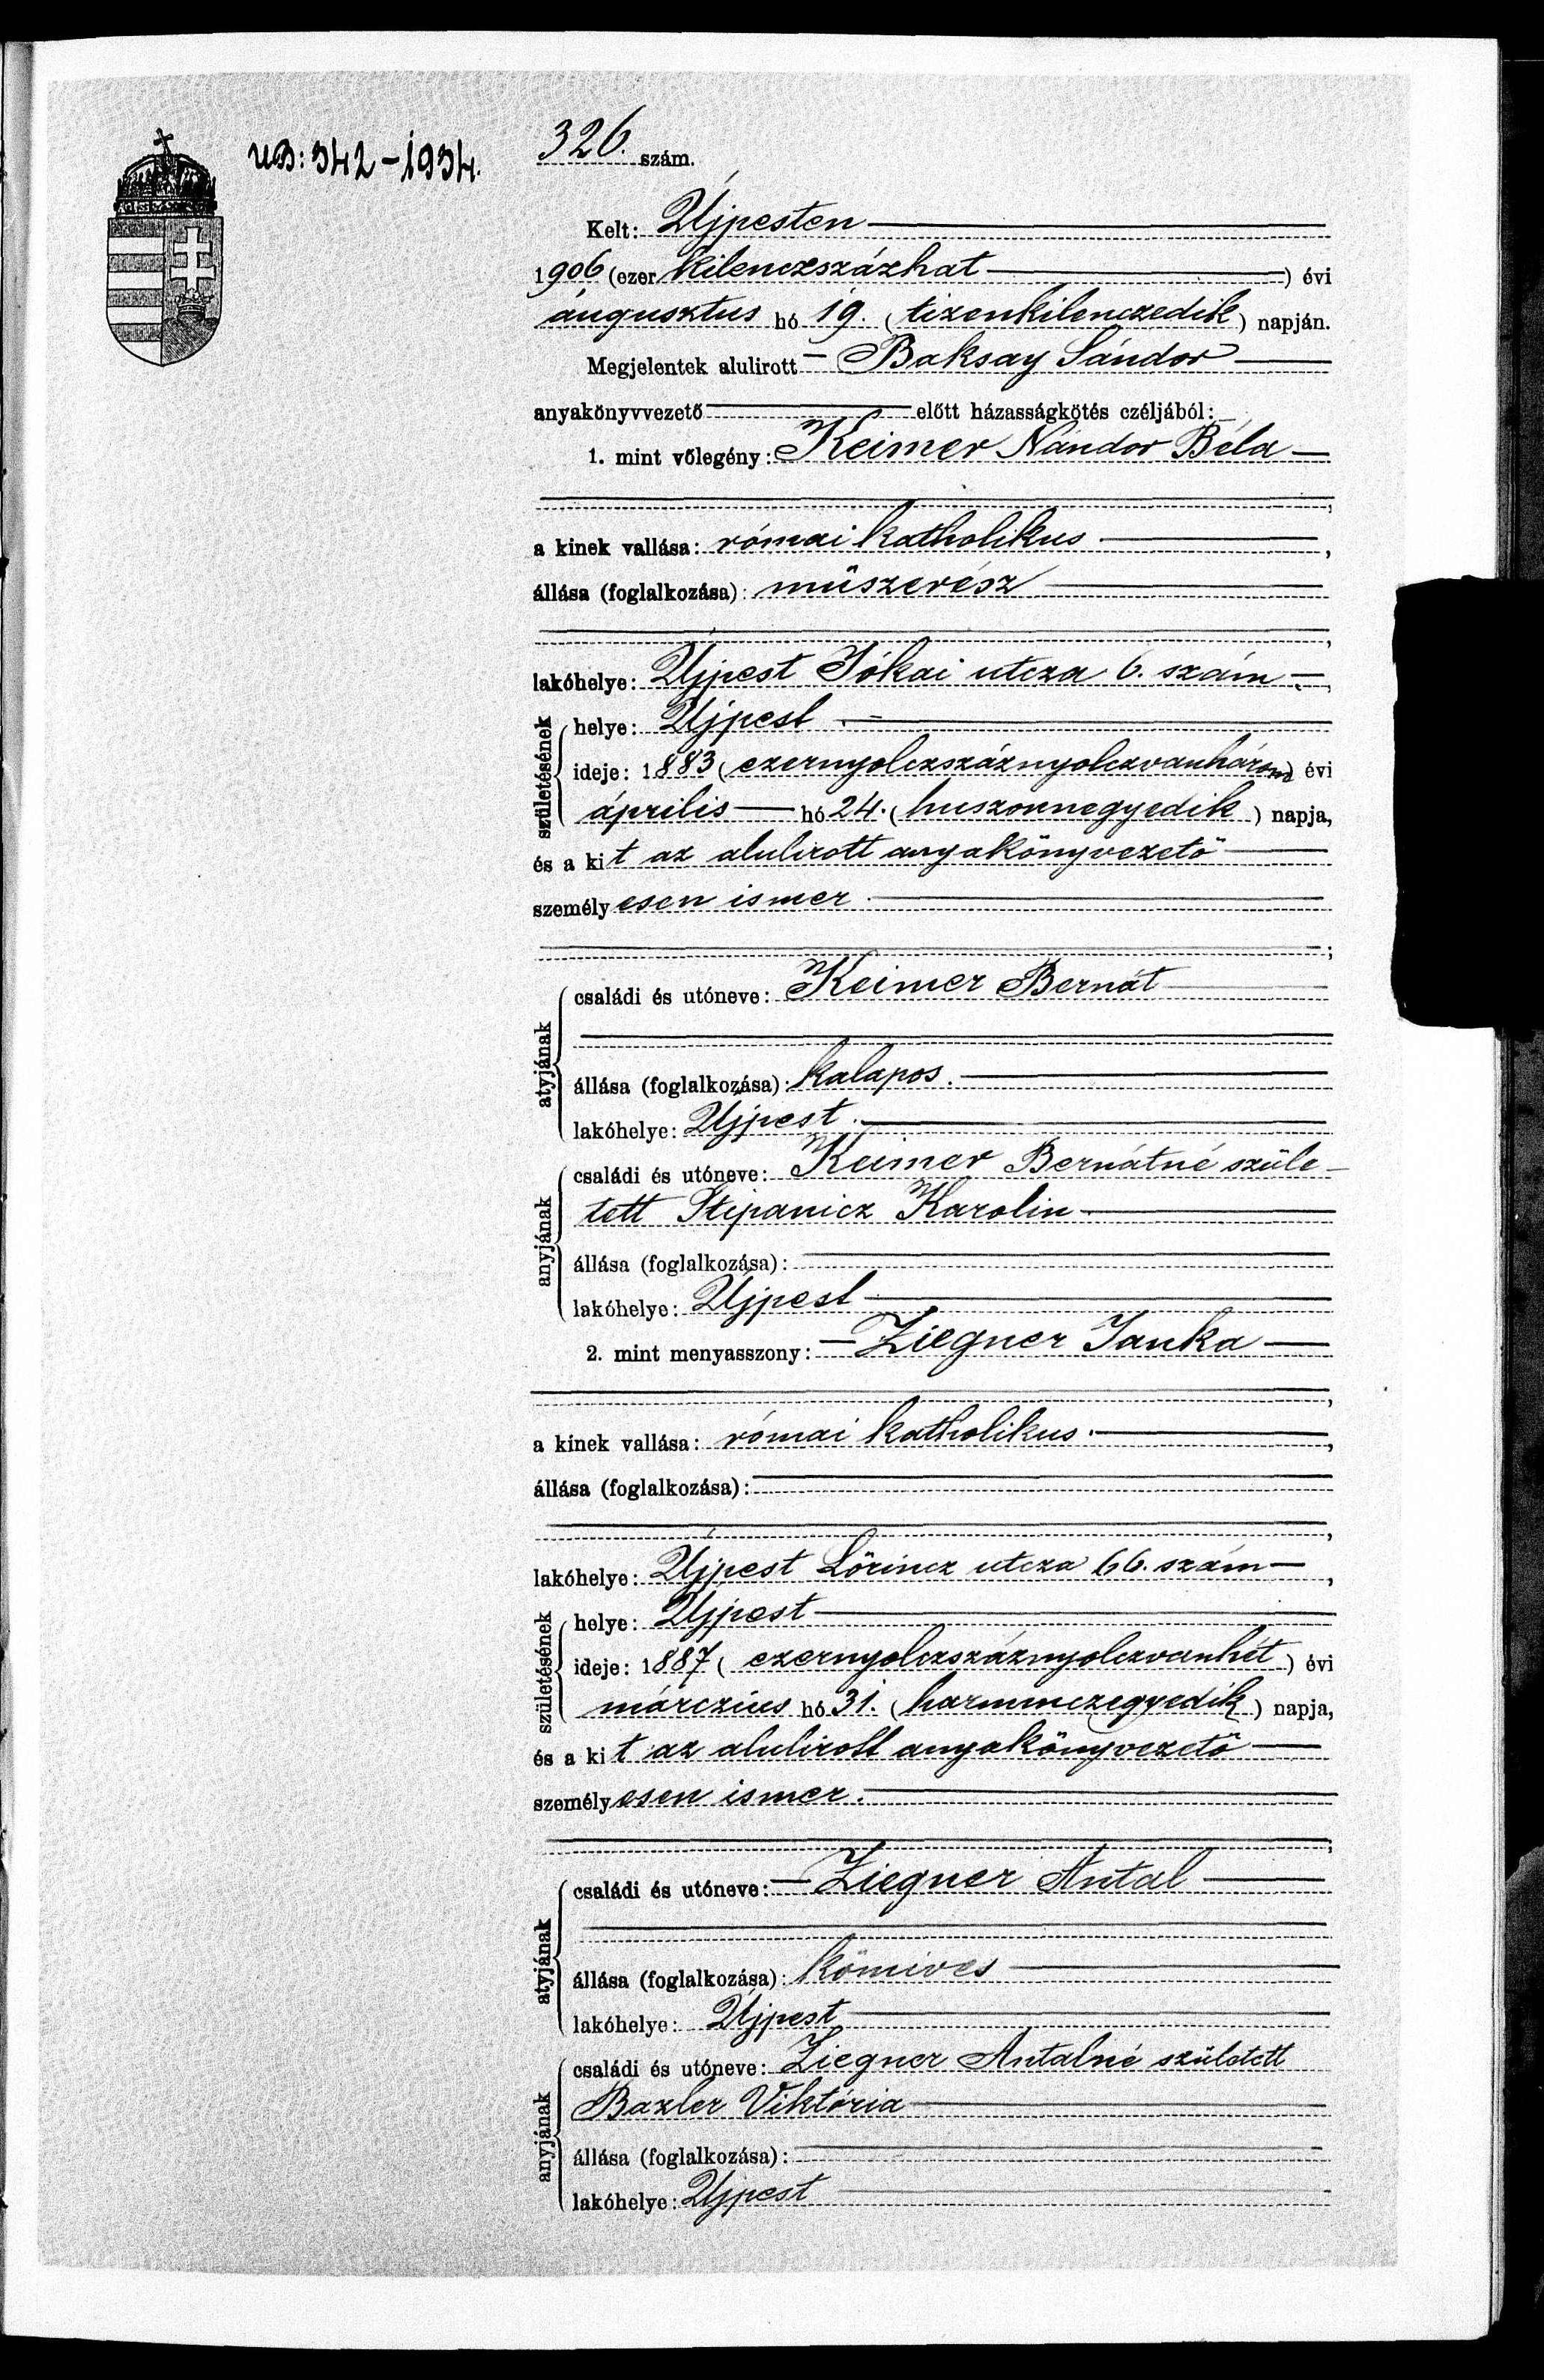 UB: 342-1934.
326. szám.
Kelt: Ujpesten
1906 (ezer kilenczszázhat) évi
áugusztus hó 19. (tizenkilenczedik) napján.
Megjelentek alulirott Baksay Sándor
anyakönyvvezető előtt házasságkötés czéljából:
1. mint vőlegény: Keimer Nándor Béla
a kinek vallása: római katholikus,
állása (foglalkozása): műszerész
lakóhelye: Ujpest Jókai utcza 6. szám,
születésének
helye: Ujpest
ideje: 1883 (ezernyolczszáznyolczvanhárom) évi
április hó 24. (huszonnegyedik) napja,
és a kit az alulirott anyakönyvezető
személyesen ismer
atyjának
családi és utóneve: Keimer Bernát
állása (foglalkozása): kalapos.
lakóhelye: Ujpest.
anyjának
családi és utóneve: Keimer Bernátné szüle-
tett Stipanicz Karolin
állása (foglalkozása):
lakóhelye: Ujpest
2. mint menyasszony: Ziegner Janka
a kinek vallása: római katholikus,
állása (foglalkozása):
lakóhelye: Ujpest Lőrincz utcza 66. szám,
születésének
helye: Ujpest
ideje: 1887 (ezernyolczszáznyolczvanhét) évi
márczius hó 31. (harminczegyedik) napja,
és a kit az alulirott anyakönyvezető
személyesen ismer.
atyjának
családi és utóneve: Ziegner Antal
állása (foglalkozása): kőmives
lakóhelye: Ujpest
anyjának
családi és utóneve: Ziegner Antalné született
Bazler Viktória
állása (foglalkozása):
lakóhelye: Ujpest